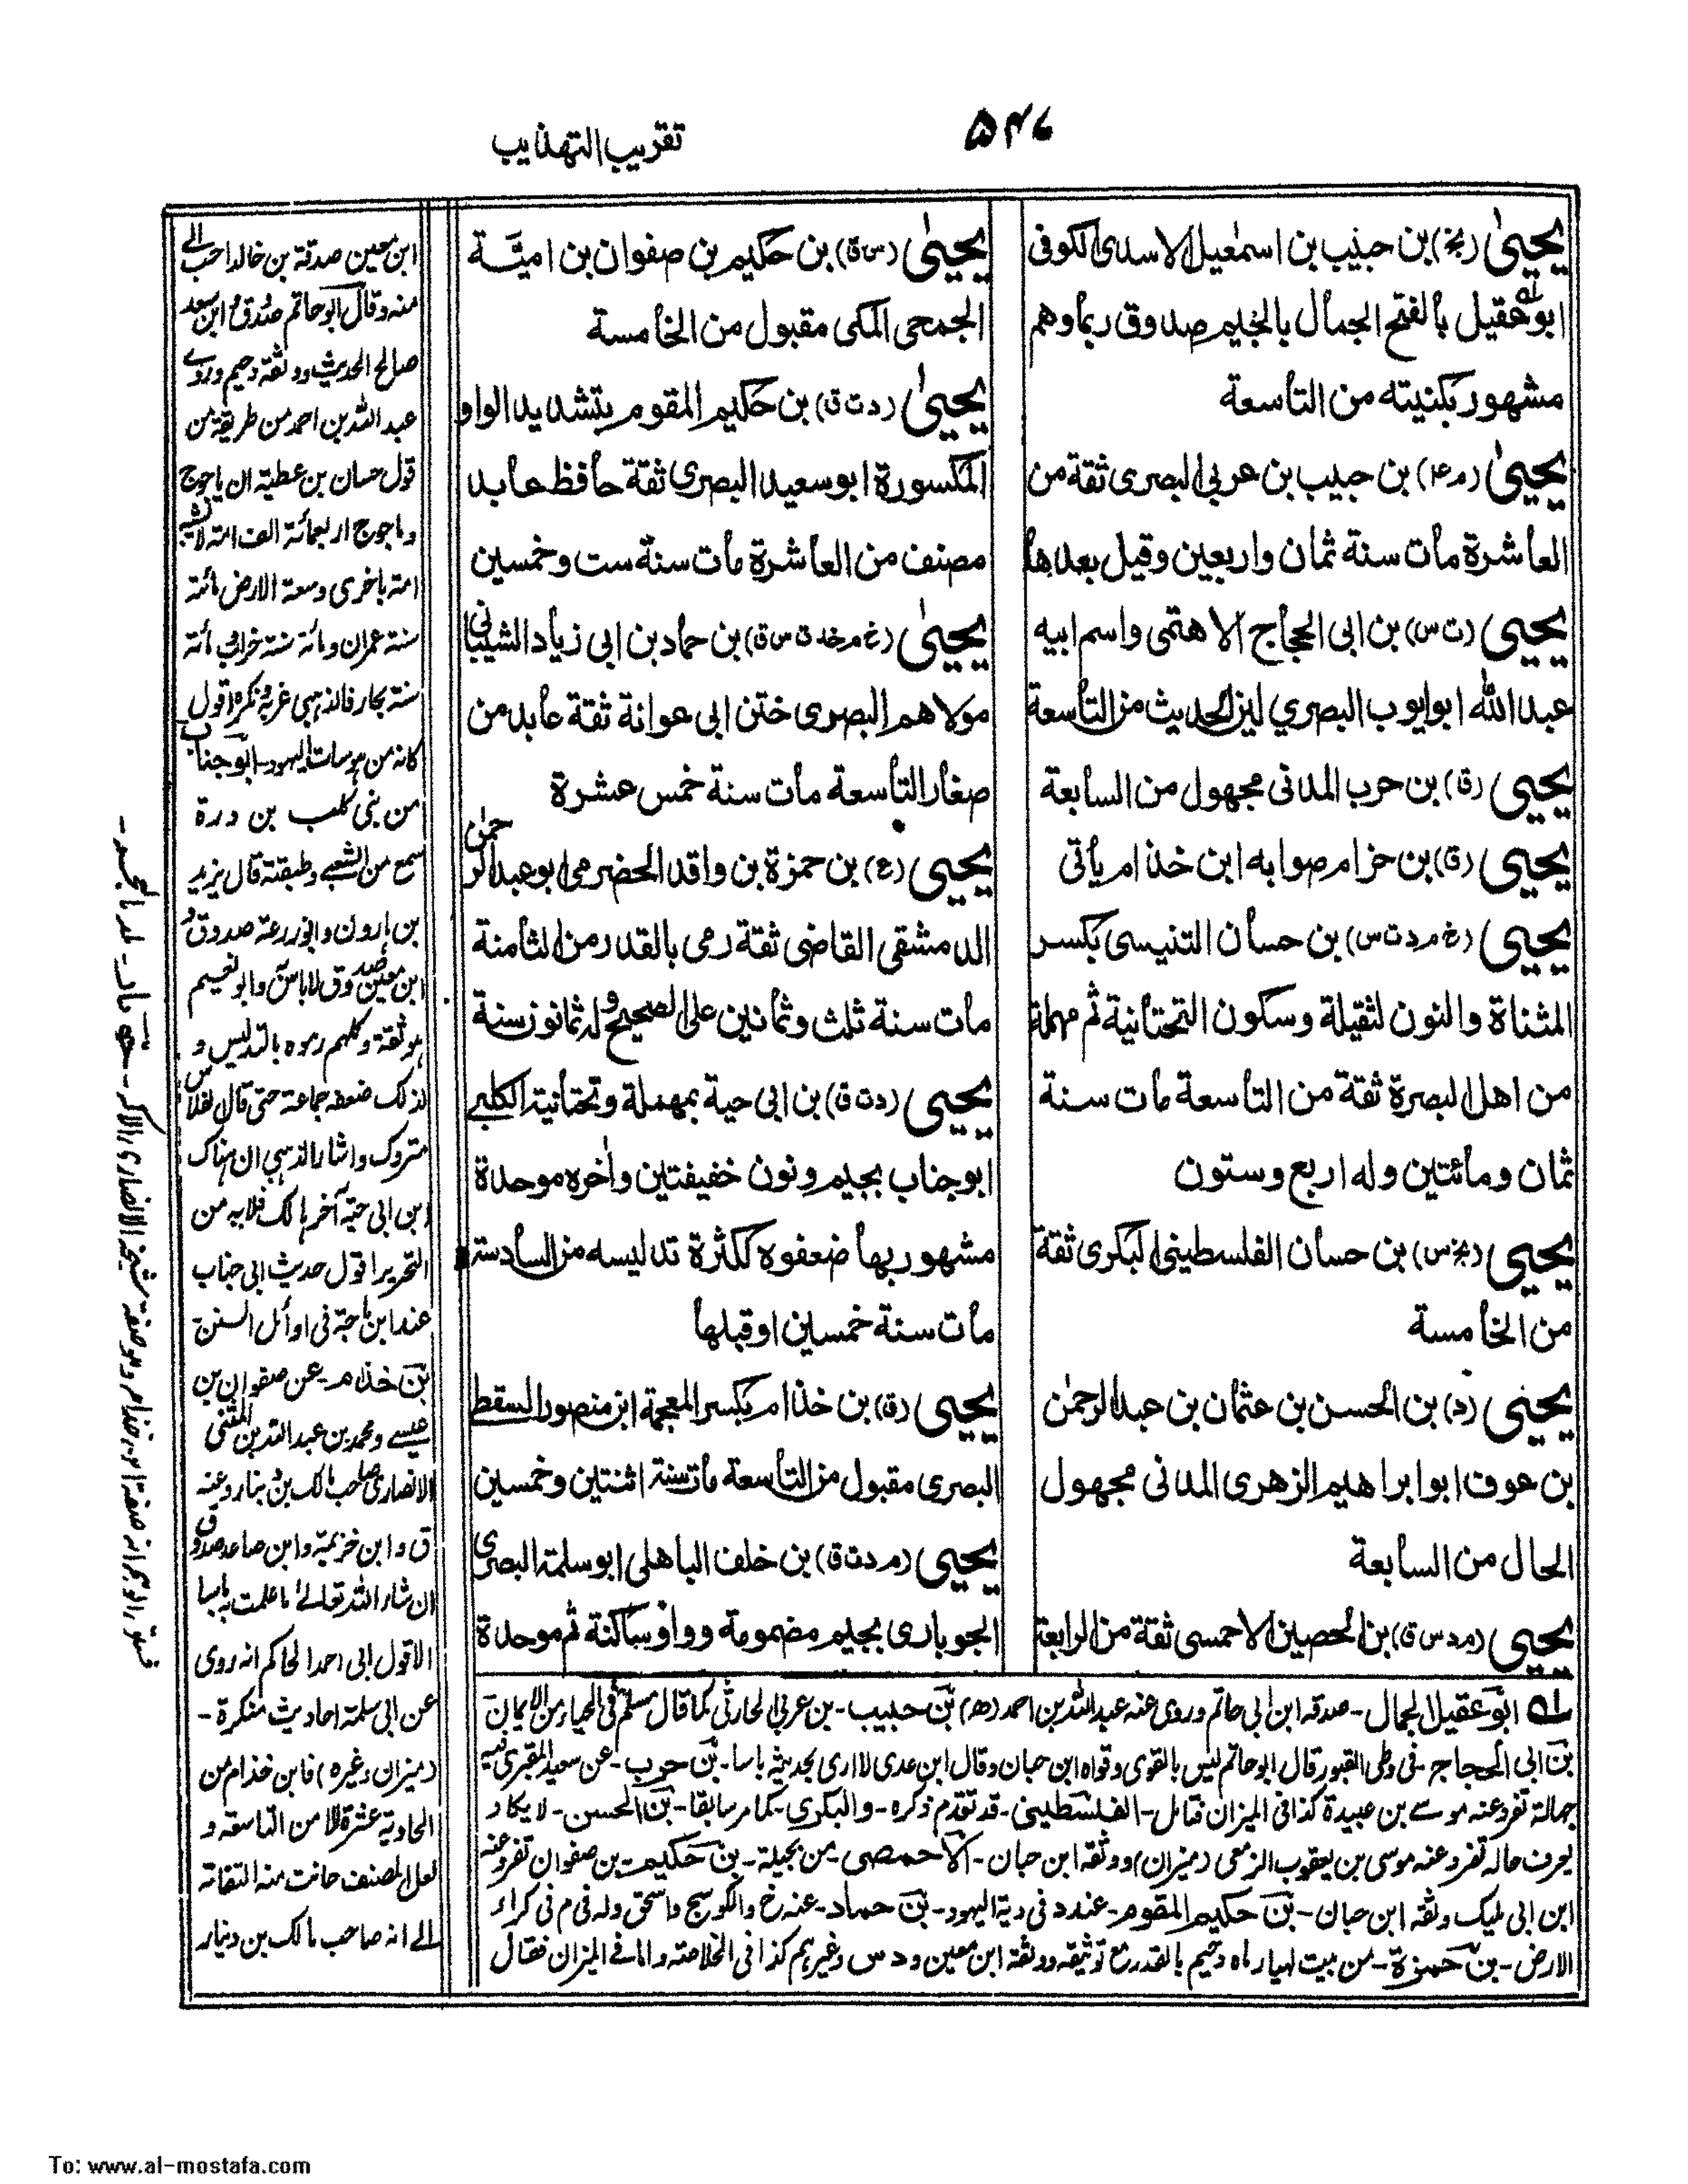 ۵۴۶
تقريب التهذيب
يحيىٰ (بخ) بن حبيب بن اسمٰعيل الاسدى الكوفى
ابو عقيل بالفتح الجمال بالجيم صدوق ربما وهم
مشهور بكنيته من التاسعة
يحيىٰ (م۴) بن حبيب بن عربى البصرى ثقة من
العاشرة مات سنة ثمان واربعين وقيل بعدها
يحيى (ت س) بن ابى الحجاج الاهتمى واسم ابيه
عبد الله ابو ايوب البصري لين الحديث من التاسعة
يحيى (ق) بن حرب المدنى مجهول من السابعة
يحيى (ق) بن حزام صوابه ابن خذام يأتى
يحيى (خ م د ت س) بن حسان التنيسى بكسر
المثناة والنون الثقيلة وسكون التحتانية ثم مهملة
من اهل البصرة ثقة من التاسعة مات سنة
ثمان ومائتين وله اربع وستون
يحيى (بخ س) بن حسان الفلسطينى البكرى ثقة
من الخامسة
يحيى (د) بن الحسن بن عثمان بن عبد الرحمٰن
بن عوف ابو ابراهيم الزهرى المدنى مجهول
الحال من السابعة
يحيى (م د س ق) بن الحصين الاحمسى ثقة من الرابعة
يحيىٰ (س ق) بن حكيم بن صفوان بن امية
الجمحى المكى مقبول من الخامسة
يحيىٰ (د ت ق) بن حكيم المقوم بتشديد الواو
المكسورة ابو سعيد البصرى ثقة حافظ عابد
مصنف من العاشرة مات سنة ست وخمسين
يحيىٰ (خ م خد ت س ق) بن حماد بن ابى زياد الشيبانى
مولاهم البصرى ختن ابى عوانة ثقة عابد من
صغار التاسعة مات سنة خمس عشرة
يحيى (ع) بن حمزة بن واقد الحضرمى ابو عبد الرحمٰن
الدمشقى القاضى ثقة رمى بالقدر من الثامنة
مات سنة ثلث وثمانين على الصحيح وله ثمانون سنة
يحيى (د ت ق) بن ابى حية بمهملة وتحتانية الكلبى
ابو جناب بجيم ونون خفيفتين واٰخره موحدة
مشهور بها ضعفوه لكثرة تدليسه من السادسة
مات سنة خمسين او قبلها
يحيى (ق) بن خذام بكسر المعجمة ابن منصور السقطى
البصرى مقبول من التاسعة مات سنة اثنتين وخمسين
يحيى (م د ت ق) بن خلف الباهلى ابو سلمة البصرى
الجوبارى بجيم مضمومة وواو ساكنة ثم موحدة
لـه ابو عقيل الجمال - صدقه ابن ابى حاتم وروى عنه عبد الله بن احمد (ھ) بن حبيب - بن عربى الحارثى كما قال مسلم فى الحياء من الايمان
بن ابى الحجاج - فى وطى القبور قال ابو حاتم ليس بالقوى وقواه ابن حبان وقال ابن عدى لا ارى بحديثه باسا - بن حرب - عن سعيد المقبرى فيه
جهالة تفرد عنه موسى بن عبيدة كذا فى الميزان فتامل - الفلسطينى - قد تقدم ذكره - والبكرى - كما مر سابقا - بن الحسن - لا يكاد
يعرف حاله تفرد عنه موسى بن يعقوب الزمعى (ميزان) ووثقه ابن حبان - الاحمصى - من بجيلة - بن حكيم - بن صفوان تفرد عنه
ابن ابى مليك وثقه ابن حبان - بن حكيم المقوم - عند د فى دية اليهود - بن حماد - عنه خ والكوسج واسحق وله فى م فى كراء
الارض - بن حمزة - من بيت لهيا رماه دحيم بالقدر مع توثيقه ووثقه ابن معين ود س وغيرهم كذا فى الخلاصة واما فى الميزان فقال
ابن معين صدقة بن خالد احب الى
منه وقال ابو حاتم صدوق ابن سعد
صالح الحديث ووثقه دحيم وروى
عبد الله بن احمد من طريقه من
قول حسان بن عطية ان ياجوج
وماجوج اربعمائة الف امة لا تشبه
امة باخرى وسعة الارض مائة
سنة عمران ومائة سنة خراب مائة
سنة بحار قال ذهبى غريب منكر اقول
كانه من هوسات اليهود - ابو جناب
من بنى كلب بن درة
سمع من الشعبى وطبقته قال يزيد
بن هارون وابو زرعة صدوق
ابن معين صدوق لا باس به وابو نعيم
موثقة وكلهم رموه بالتدليس و
لذلك ضعفه جماعة حتى قال الفلاس
متروك واشار الذهبى ان هناك
ابن ابى حية آخر هالك فلا بد من
التحرير اقول حديث ابى جناب
عند ابن ماجة فى اوائل السنن
بن خذام - عن صفوان بن
عيسى ومحمد بن عبد الله بن المثنى
الانصارى صاحب مالك بن دينار وعنه
ق وابن خزيمة وابن صاعد صدوق
ان شاء الله تعالى ما علمت به باسا
الا قول ابى احمد الحاكم انه روى
عن ابى سلمة احاديث منكرة -
(ميزان وغيره) فابن خذام من
الحادية عشرة لا من التاسعة و
لعل المصنف حانت منه التفاتة
الى انه صاحب مالك بن دينار
To: www.al-mostafa.com